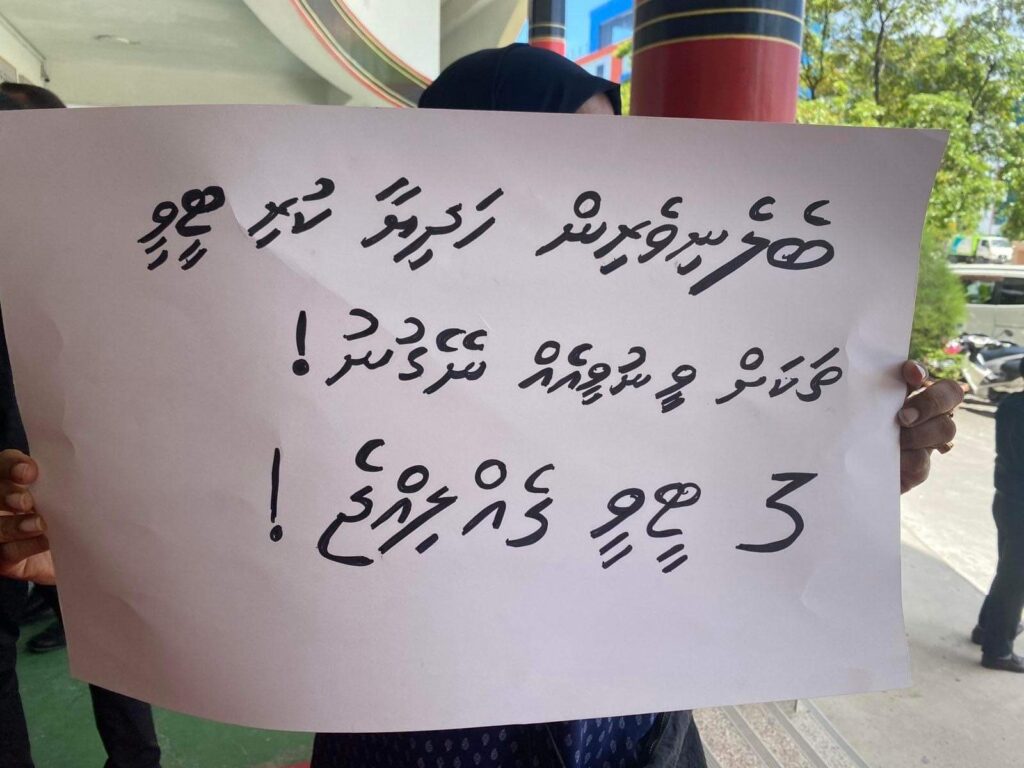 ބެލެނިވެރިން ހަދިޔާ ކުރި ޓީވީ
ތަކަށް ވީ ނުވީއެއް ނޭގުނު !
3 ޓީވީ ގެއްލިއްޖެ !